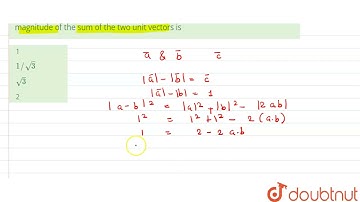 magnitude of the sum of the two unit vectors is
1
1/√3
√3
2
a̅ & b̅ c̅
|a̅| - |b̅| = c̅
|a̅| - |b| = 1
|a-b|² = |a|² + |b|² - |2ab|
1² = 1² + 1² - 2(a.b)
1 = 2 - 2 a.b
doubtnut